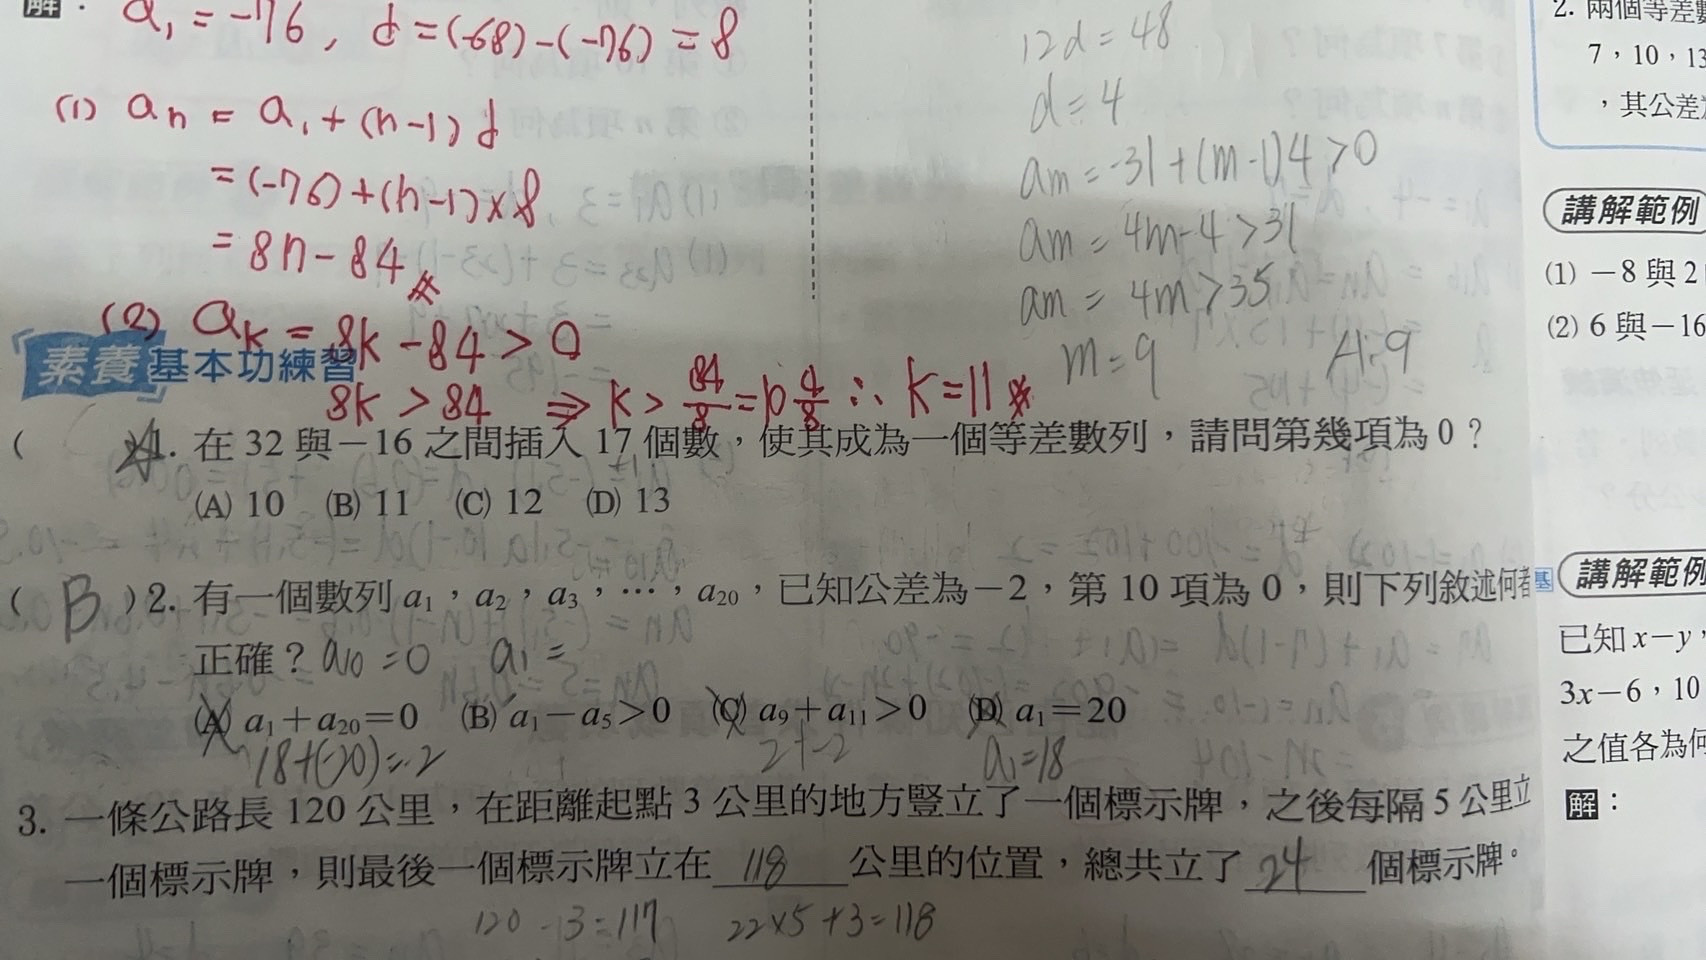 解：
a₁ = -76, d = (-68) - (-76) = 8
(1) aₙ = a₁ + (n-1)d
= (-76) + (n-1)×8
= 8n - 84 #
(2) aₖ = 8k - 84 > 0
8k > 84 ⇒ k > 84/8 = 10 4/8 ∴ k = 11 #
12d = 48
d = 4
am = -31 + (m-1)4 > 0
am = 4m - 4 > 31
am = 4m > 35
m = 9 A:9
素養基本功練習
( 1. 在 32 與－16 之間插入 17 個數，使其成為一個等差數列，請問第幾項為 0？
(A) 10 (B) 11 (C) 12 (D) 13
( B ) 2. 有一個數列 a₁，a₂，a₃，…，a₂₀，已知公差為－2，第 10 項為 0，則下列敘述何者
正確？ a₁₀ = 0 a₁ =
(A) a₁＋a₂₀＝0 (B) a₁－a₅＞0 (C) a₉＋a₁₁＞0 (D) a₁＝20
18+(-20)=-2 2+-2 a₁=18
3. 一條公路長 120 公里，在距離起點 3 公里的地方豎立了一個標示牌，之後每隔 5 公里立
一個標示牌，則最後一個標示牌立在 118 公里的位置，總共立了 24 個標示牌。
120 - 3 = 117 22×5+3=118
2. 兩個等差
7，10，13
，其公差
講解範例
(1) －8 與 2
(2) 6 與－16
基 講解範例
已知 x－y，
3x－6，10
之值各為何
解：